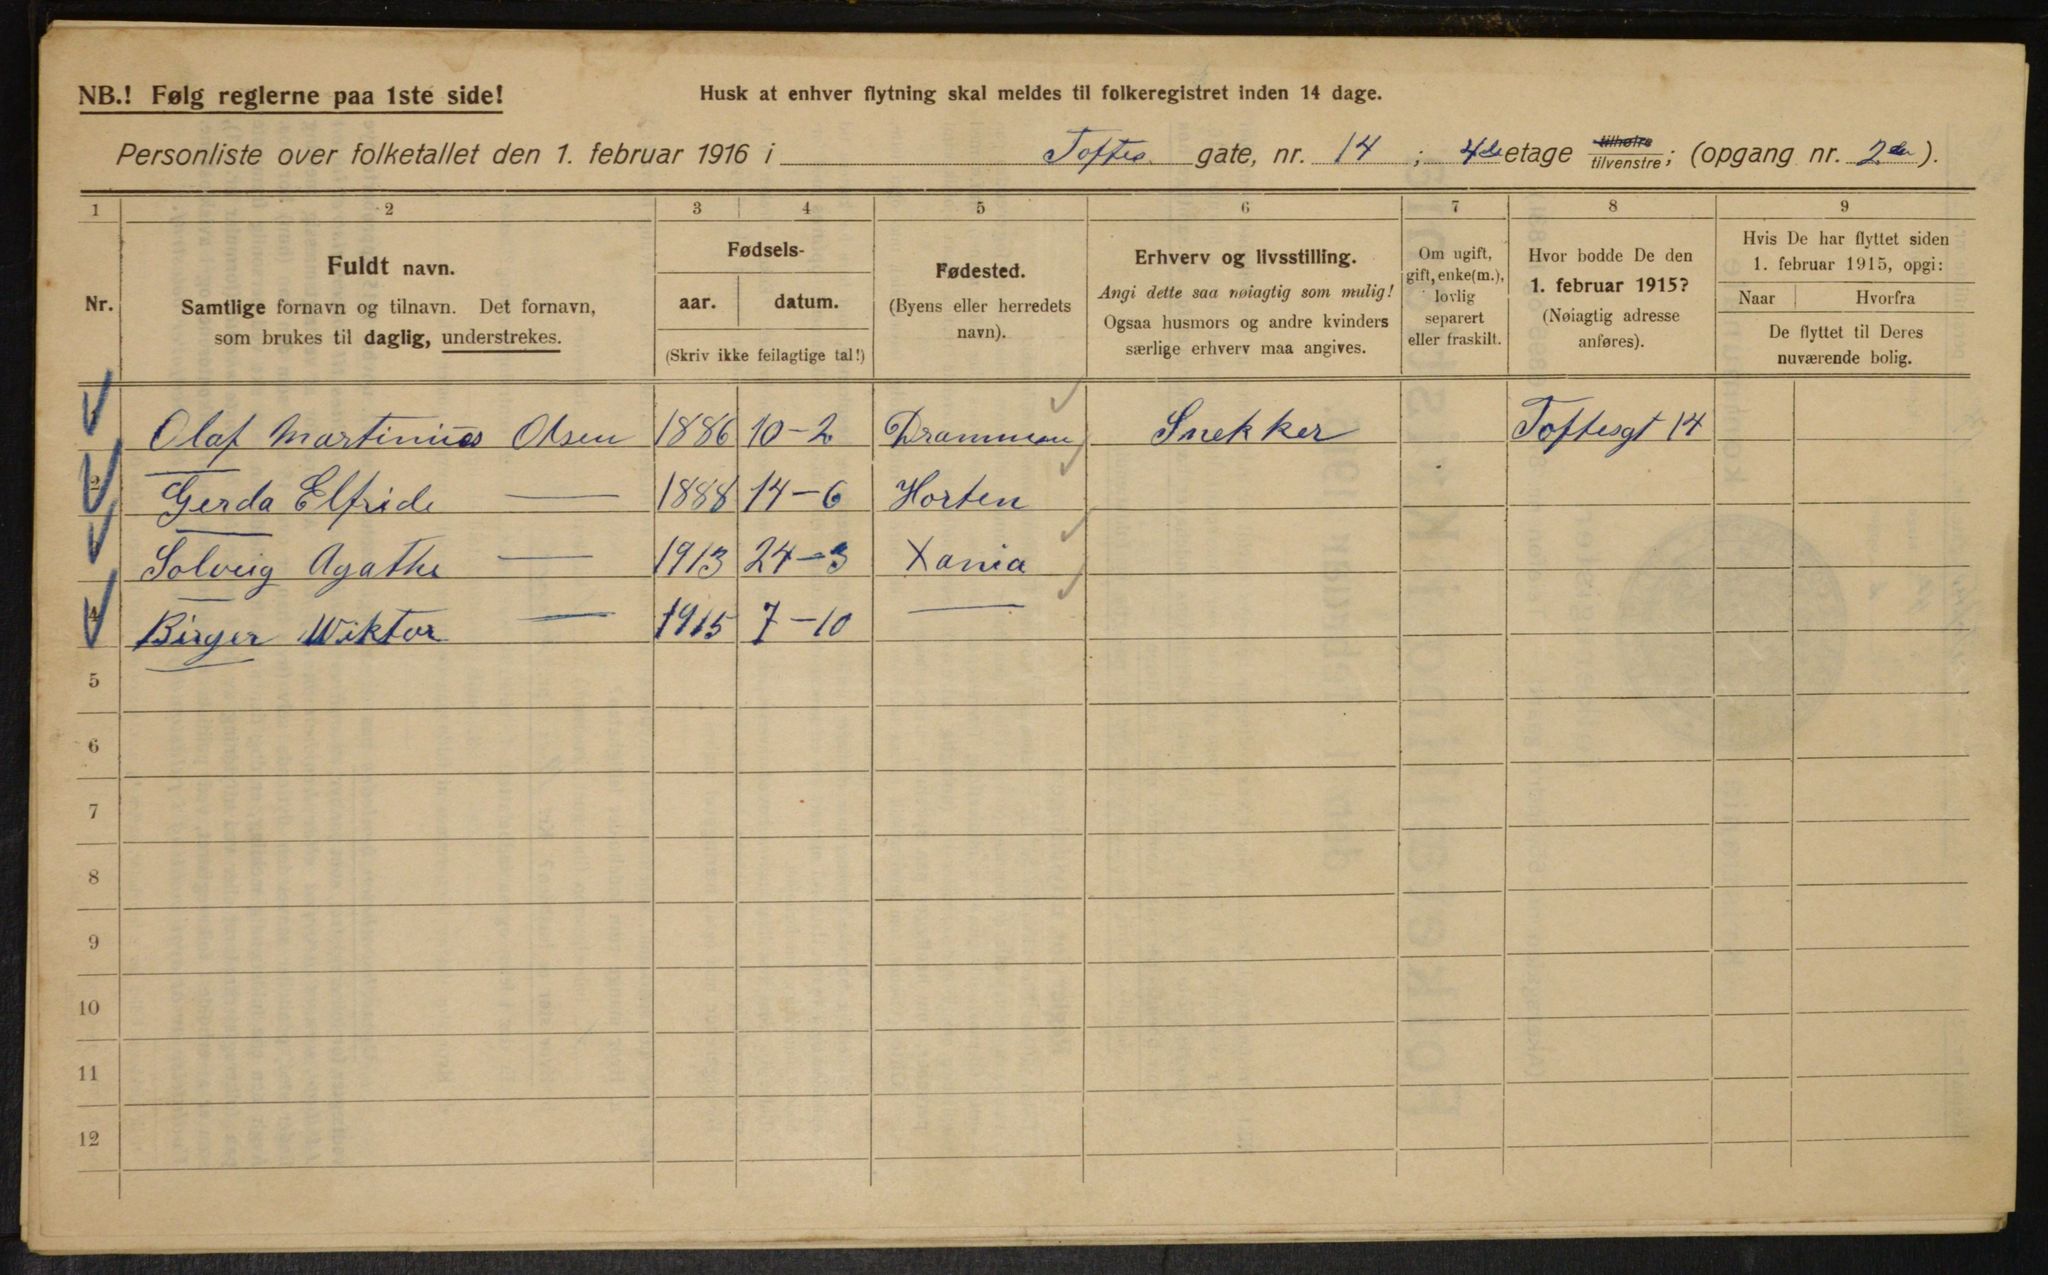 NB.! Følg reglerne paa 1ste side!
Husk at enhver flytning skal meldes til folkeregistret inden 14 dage.
Personliste over folketallet den 1. februar 1916 i Toftes gate, nr. 14 ; 4de etage tilhøire tilvenstre; (opgang nr. 2den ).
1 2 3 4 5 6 7 8 9
Nr.
Fuldt navn.
Samtlige fornavn og tilnavn. Det fornavn,
som brukes til daglig, understrekes.
Fødsels-
aar. datum.
(Skriv ikke feilagtige tal!)
Fødested.
(Byens eller herredets
navn).
Erhverv og livsstilling.
Angi dette saa nøiagtig som mulig!
Ogsaa husmors og andre kvinders
særlige erhverv maa angives.
Om ugift,
gift, enke(m.),
lovlig
separert
eller fraskilt.
Hvor bodde De den
1. februar 1915?
(Nøiagtig adresse
anføres).
Hvis De har flyttet siden
1. februar 1915, opgi:
Naar Hvorfra
De flyttet til Deres
nuværende bolig.
Olaf Martinius Olsen 1886 10-2 Drammen Snekker Toftesgt 14
2 Gerda Elfride — 1888 14-6 Horten
Solveig Agathe — 1913 24-3 Xania
4 Birger Wiktor — 1915 7-10 —
5
6
7
8
9
10
11
12